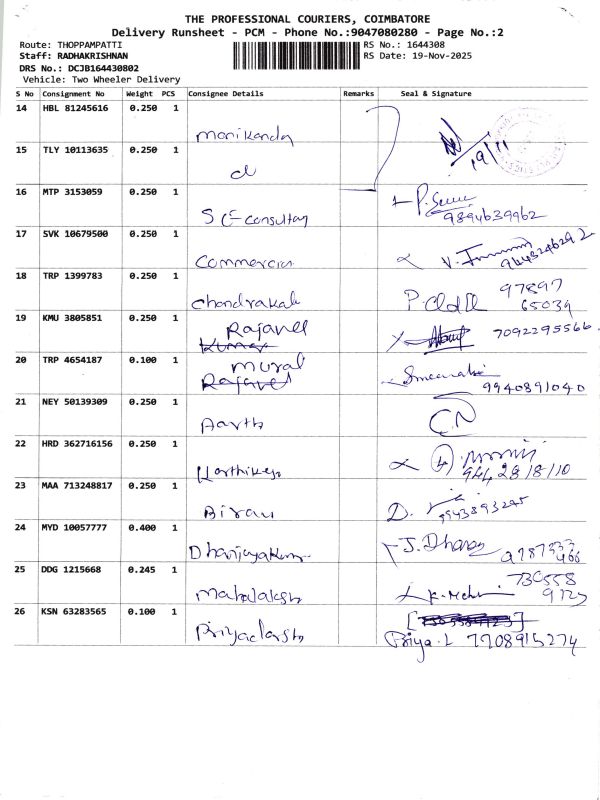 THE PROFESSIONAL COURIERS, COIMBATORE
Delivery Runsheet - PCM - Phone No.:9047080280 - Page No.:2
Route: THOPPAMPATTI RS No.: 1644308
Staff: RADHAKRISHNAN RS Date: 19-Nov-2025
DRS No.: DCJB164430802
Vehicle: Two Wheeler Delivery
S No Consignment No Weight PCS Consignee Details Remarks Seal & Signature
14 HBL 81245616 0.250 1
Manikanda
19/11
15 TLY 10113635 0.250 1
cl
16 MTP 3153059 0.250 1
S CE consultay
9894639962
17 SVK 10679500 0.250 1
Commercia
18 TRP 1399783 0.250 1
Chandrakala
97897
65039
19 KMU 3805851 0.250 1
Rajavel
7092295566
20 TRP 4654187 0.100 1
Mural
Rajavel
9940891040
21 NEY 50139309 0.250 1
Aarth
22 HRD 362716156 0.250 1
Karthikeya
23 MAA 713248817 0.250 1
24 MYD 10057777 0.400 1
Dhanjayakum
J. Dhanan
25 DDG 1215668 0.245 1
Mahalaksh
26 KSN 63283565 0.100 1
Priyadarsh
Priya.L 7708915274